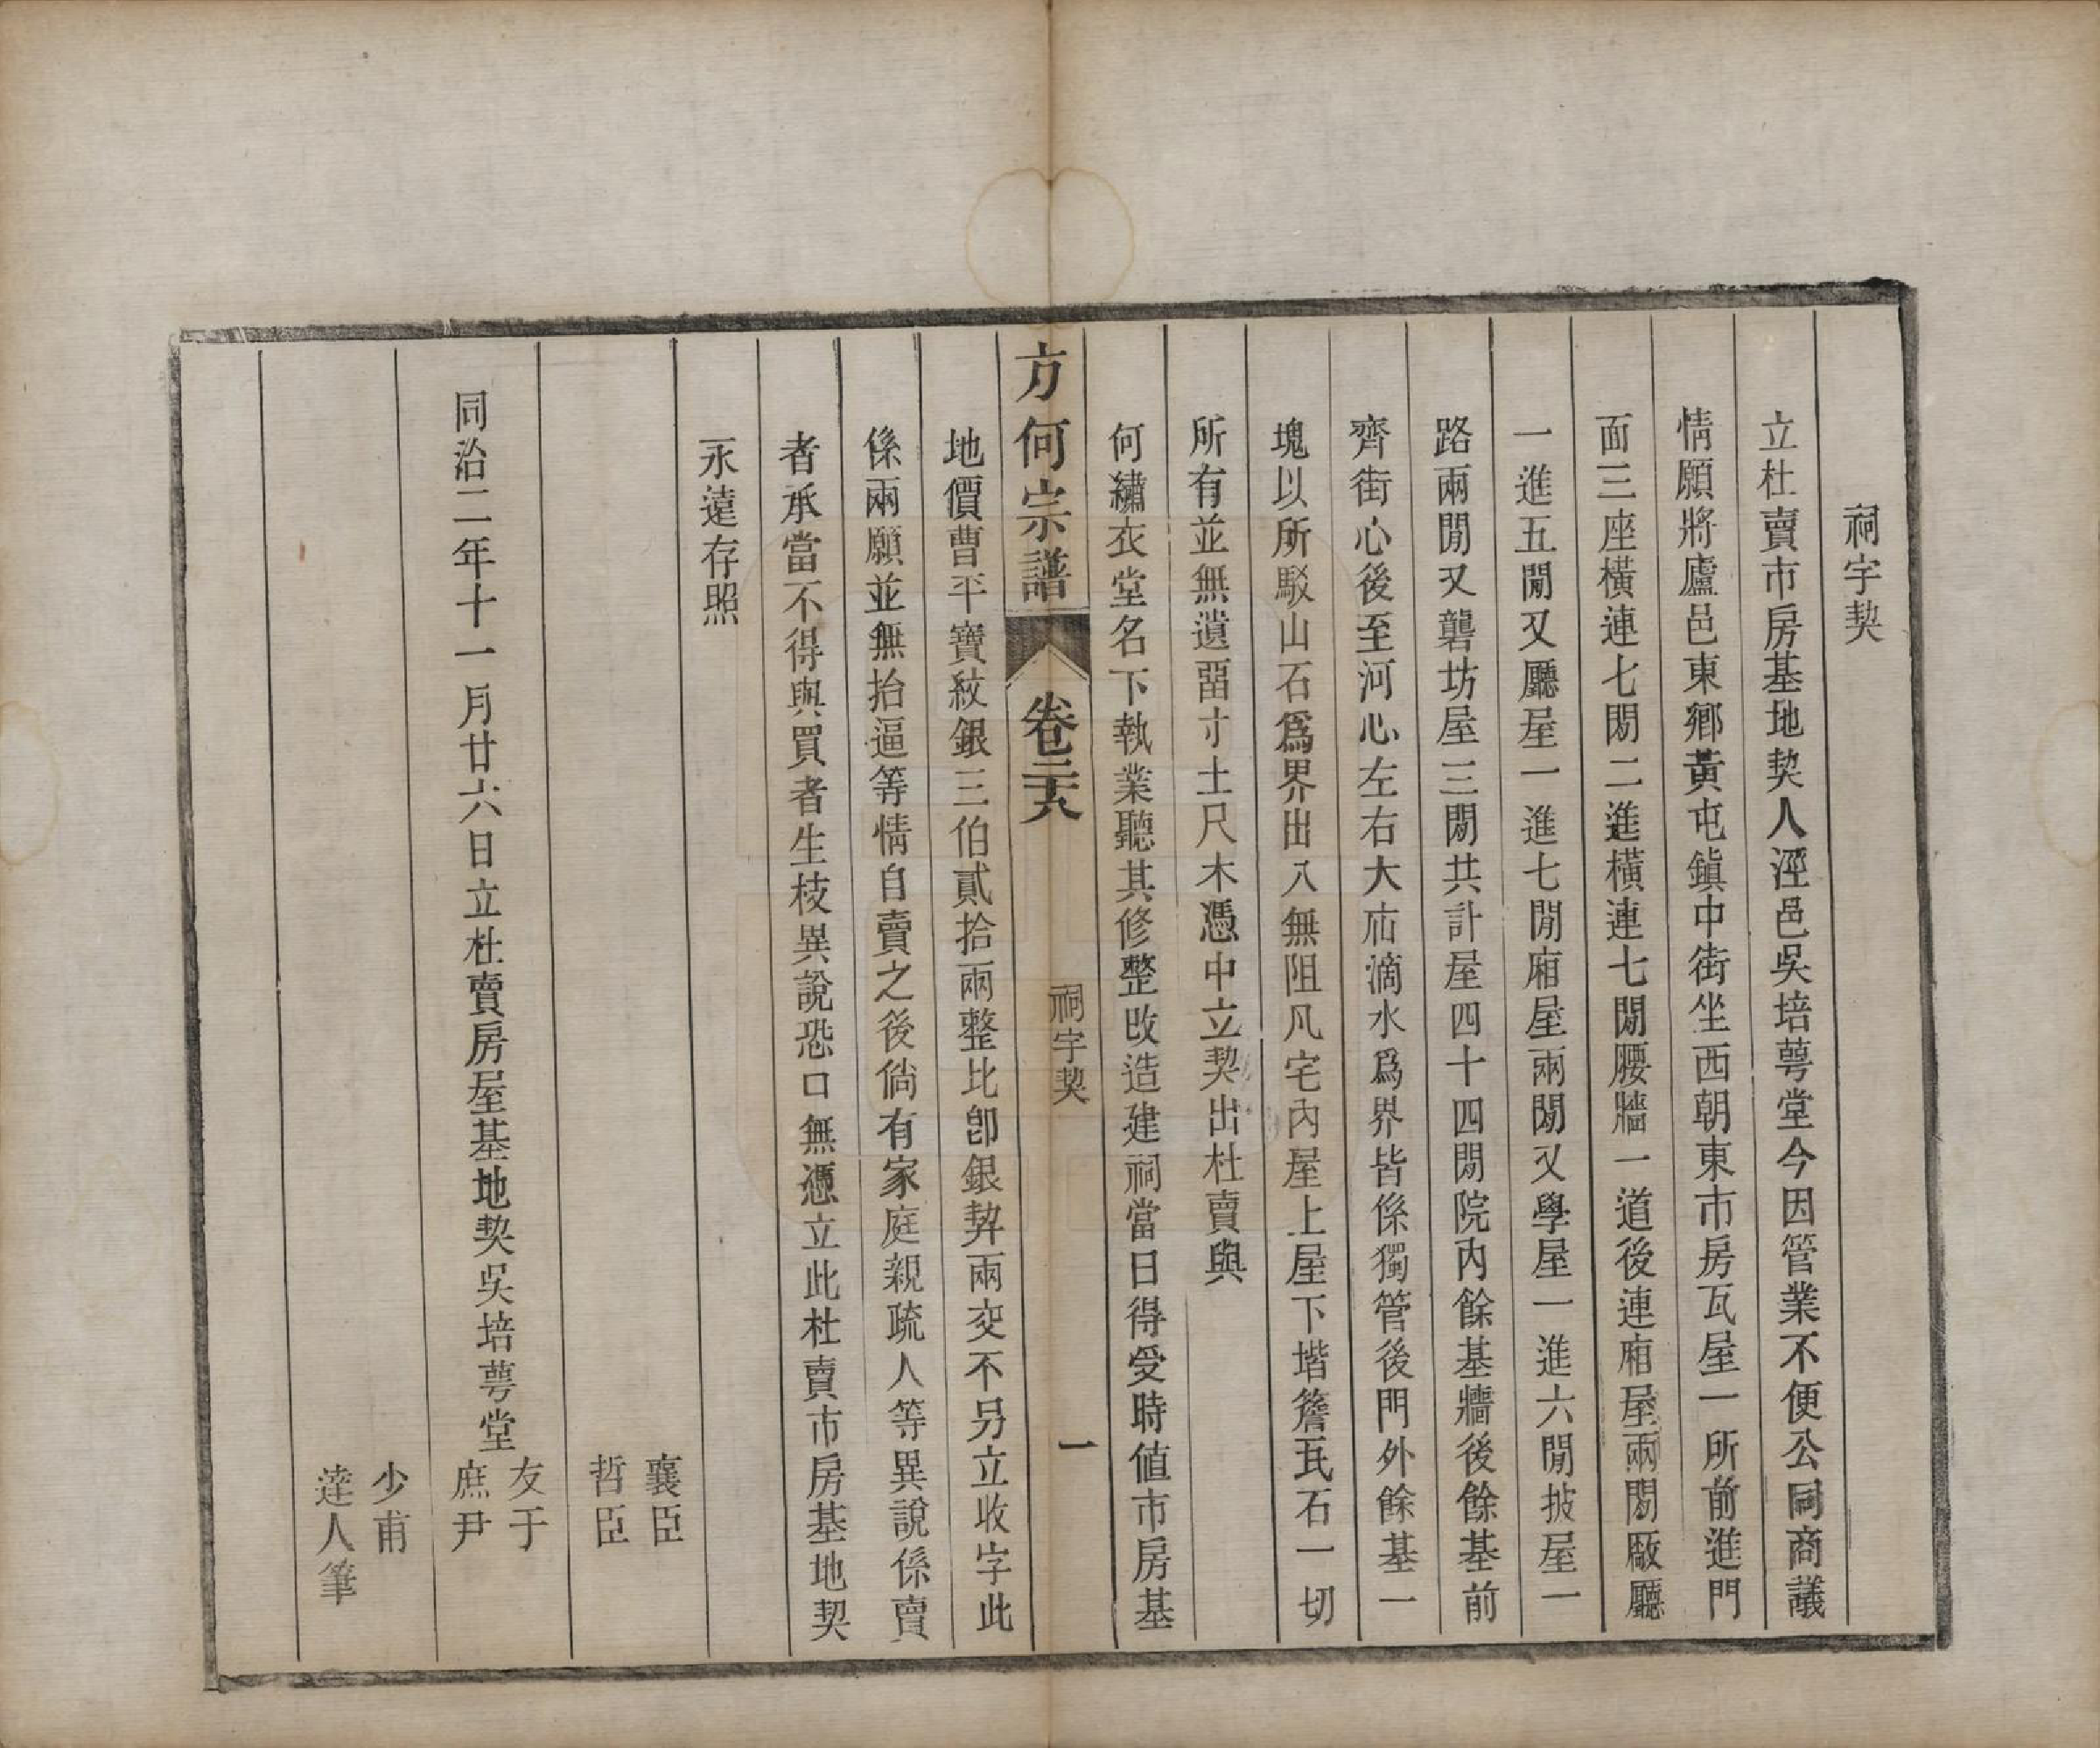 祠字契
立杜賣市房基地契人涇邑吳培萼堂今因管業不便公同商議
情願將廬邑東鄉黃屯鎮中街坐西朝東市房瓦屋一所前進門
面三座橫連七間二進橫連七間腰牆一道後連廂屋兩間廠廳
一進五間又廳屋一進七間廂屋兩間又學屋一進六間披屋一
路兩間又礱坊屋三間共計屋四十四間院內餘基牆後餘基前
齊街心後至河心左右大㡳滴水爲界皆係獨管後門外餘基一
塊以所駁山石爲界出入無阻凡宅內屋上屋下堦簷瓦石一切
所有並無遺畱寸土尺木憑中立契出杜賣與
何繡衣堂名下執業聽其修整改造建祠當日得受時值市房基
方何宗譜
卷二十八
祠字契
一
地價曹平寶紋銀三伯貳拾兩整比卽銀契兩交不另立收字此
係兩願並無抬逼等情自賣之後倘有家庭親疏人等異說係賣
者承當不得與買者生枝異說恐口無憑立此杜賣市房基地契
永遠存照
襄臣
哲臣
同治二年十一月廿六日立杜賣房屋基地契吳培萼堂
友于
庶尹
少甫
達人筆